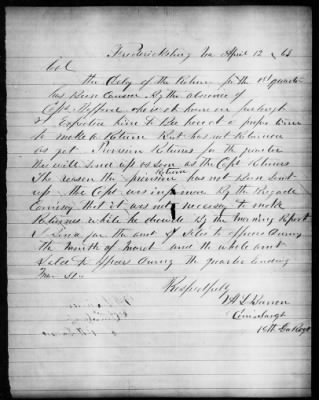 Fredericksburg Va April 12 63
Col
The delay of the Return for the 1st quarter
has been caused by the absence of
Capt who is at home on furlough
& expected here to be here at a proper time
to make a Return but has not returned
as yet Provision Returns for the quarter
the will send up as soon as the Capt Returns
The reason the provision Return has not been sent
up the Capt was informed by the Brigade
Comsary that it was not necessary to make
Returns while he drawed by the Morning Report
I send for the amt of Sales to officers during
the month of March and the whole amt
Sold to officers during the quarter ending
Mar 31st
Respectfully
L Warren
Com Sargt
19th Ga Regt